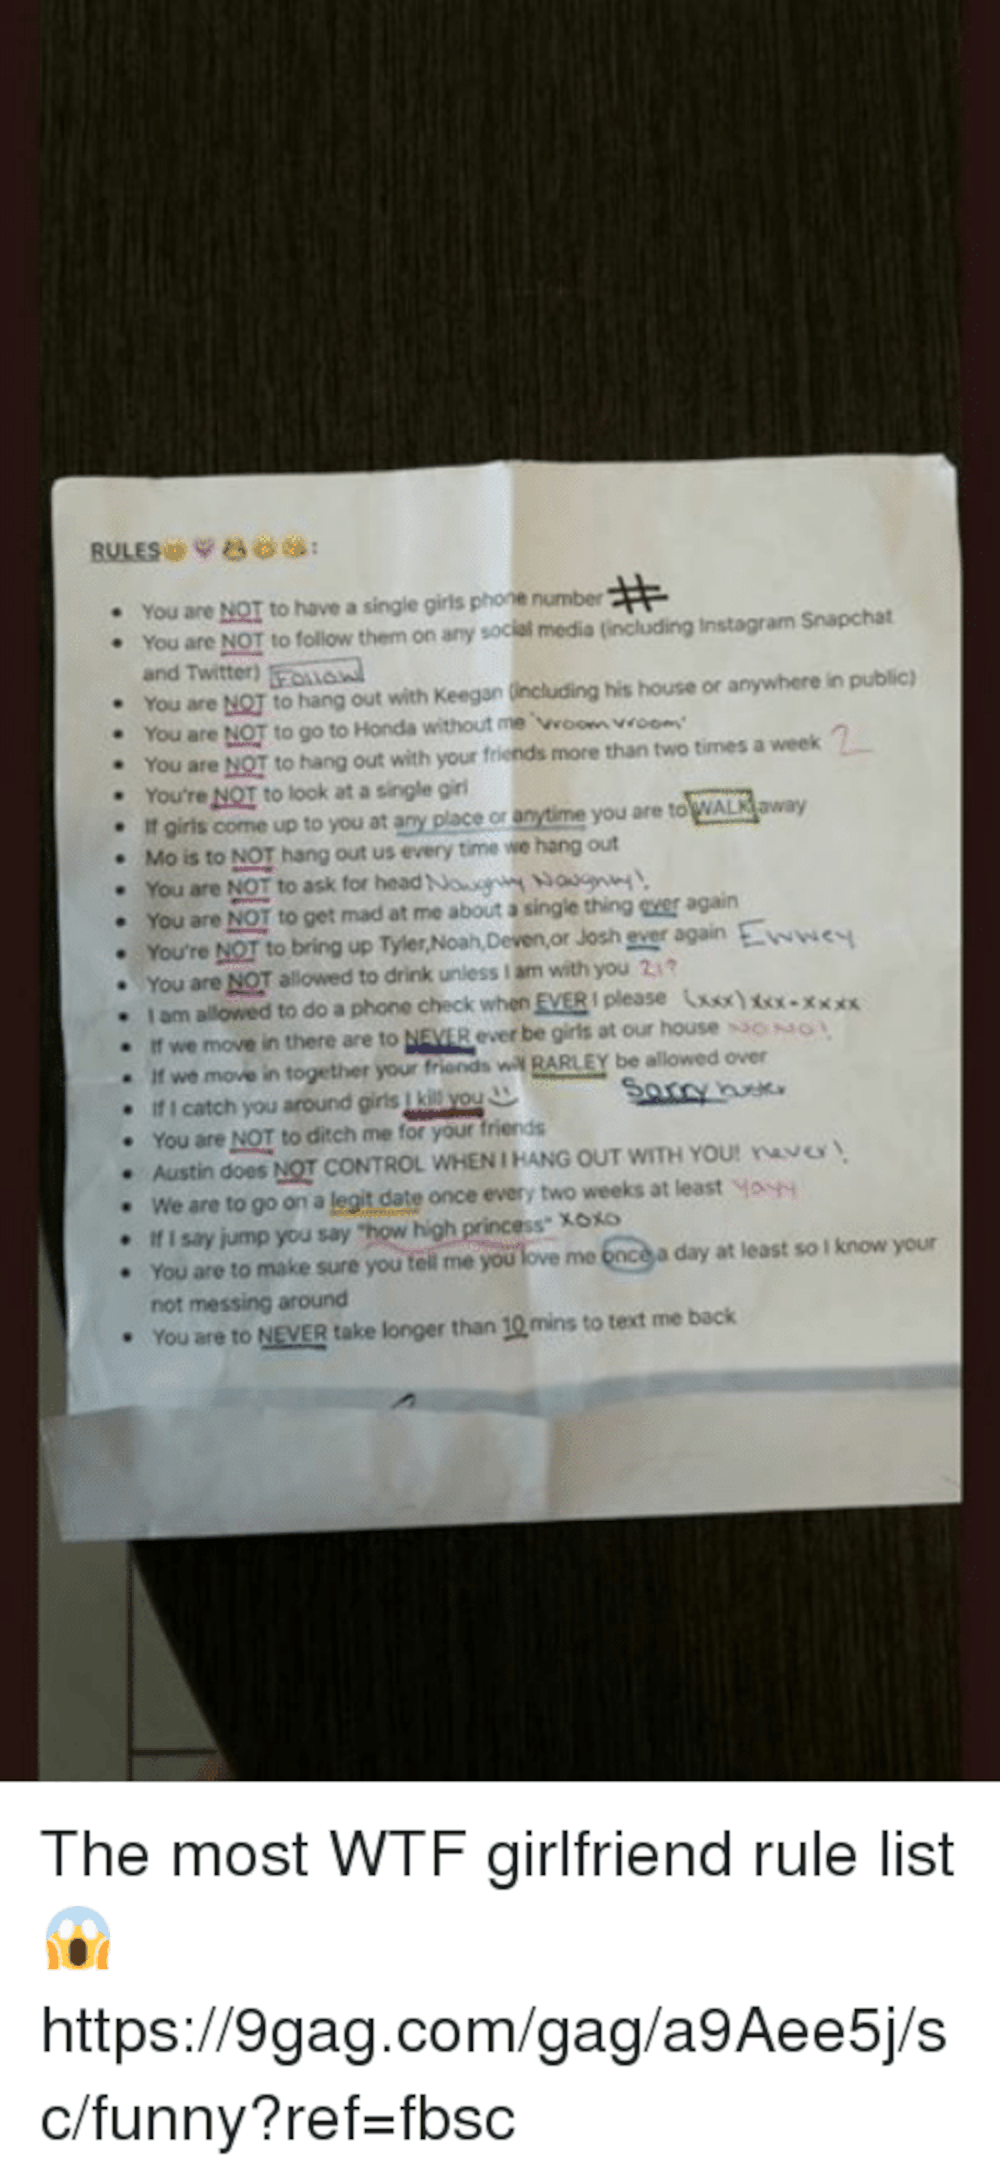 RULES😊💗🙈😊😘:
• You are NOT to have a single girls phone number #
• You are NOT to follow them on any social media (including Instagram Snapchat
and Twitter) Follow
• You are NOT to hang out with Keegan (including his house or anywhere in public)
• You are NOT to go to Honda without me "vroom vroom"
• You are NOT to hang out with your friends more than two times a week 2
• You're NOT to look at a single girl
• If girls come up to you at any place or anytime you are to WALK away
• Mo is to NOT hang out us every time we hang out
• You are NOT to ask for head Naughty Naughty!
• You are NOT to get mad at me about a single thing ever again
• You're NOT to bring up Tyler,Noah,Deven,or Josh ever again Ewwey
• You are NOT allowed to drink unless I am with you 21?
• I am allowed to do a phone check when EVER I please (xxx)xxx-xxxx
• If we move in there are to NEVER ever be girls at our house NO NO!
• If we move in together your friends will RARLEY be allowed over
• If I catch you around girls I kill you Sorry
• You are NOT to ditch me for your friends
• Austin does NOT CONTROL WHEN I HANG OUT WITH YOU! never!
• We are to go on a legit date once every two weeks at least yayy
• If I say jump you say "how high princess" xoxo
• You are to make sure you tell me you love me once a day at least so I know your
not messing around
• You are to NEVER take longer than 10 mins to text me back
The most WTF girlfriend rule list
😱
https://9gag.com/gag/a9Aee5j/s
c/funny?ref=fbsc